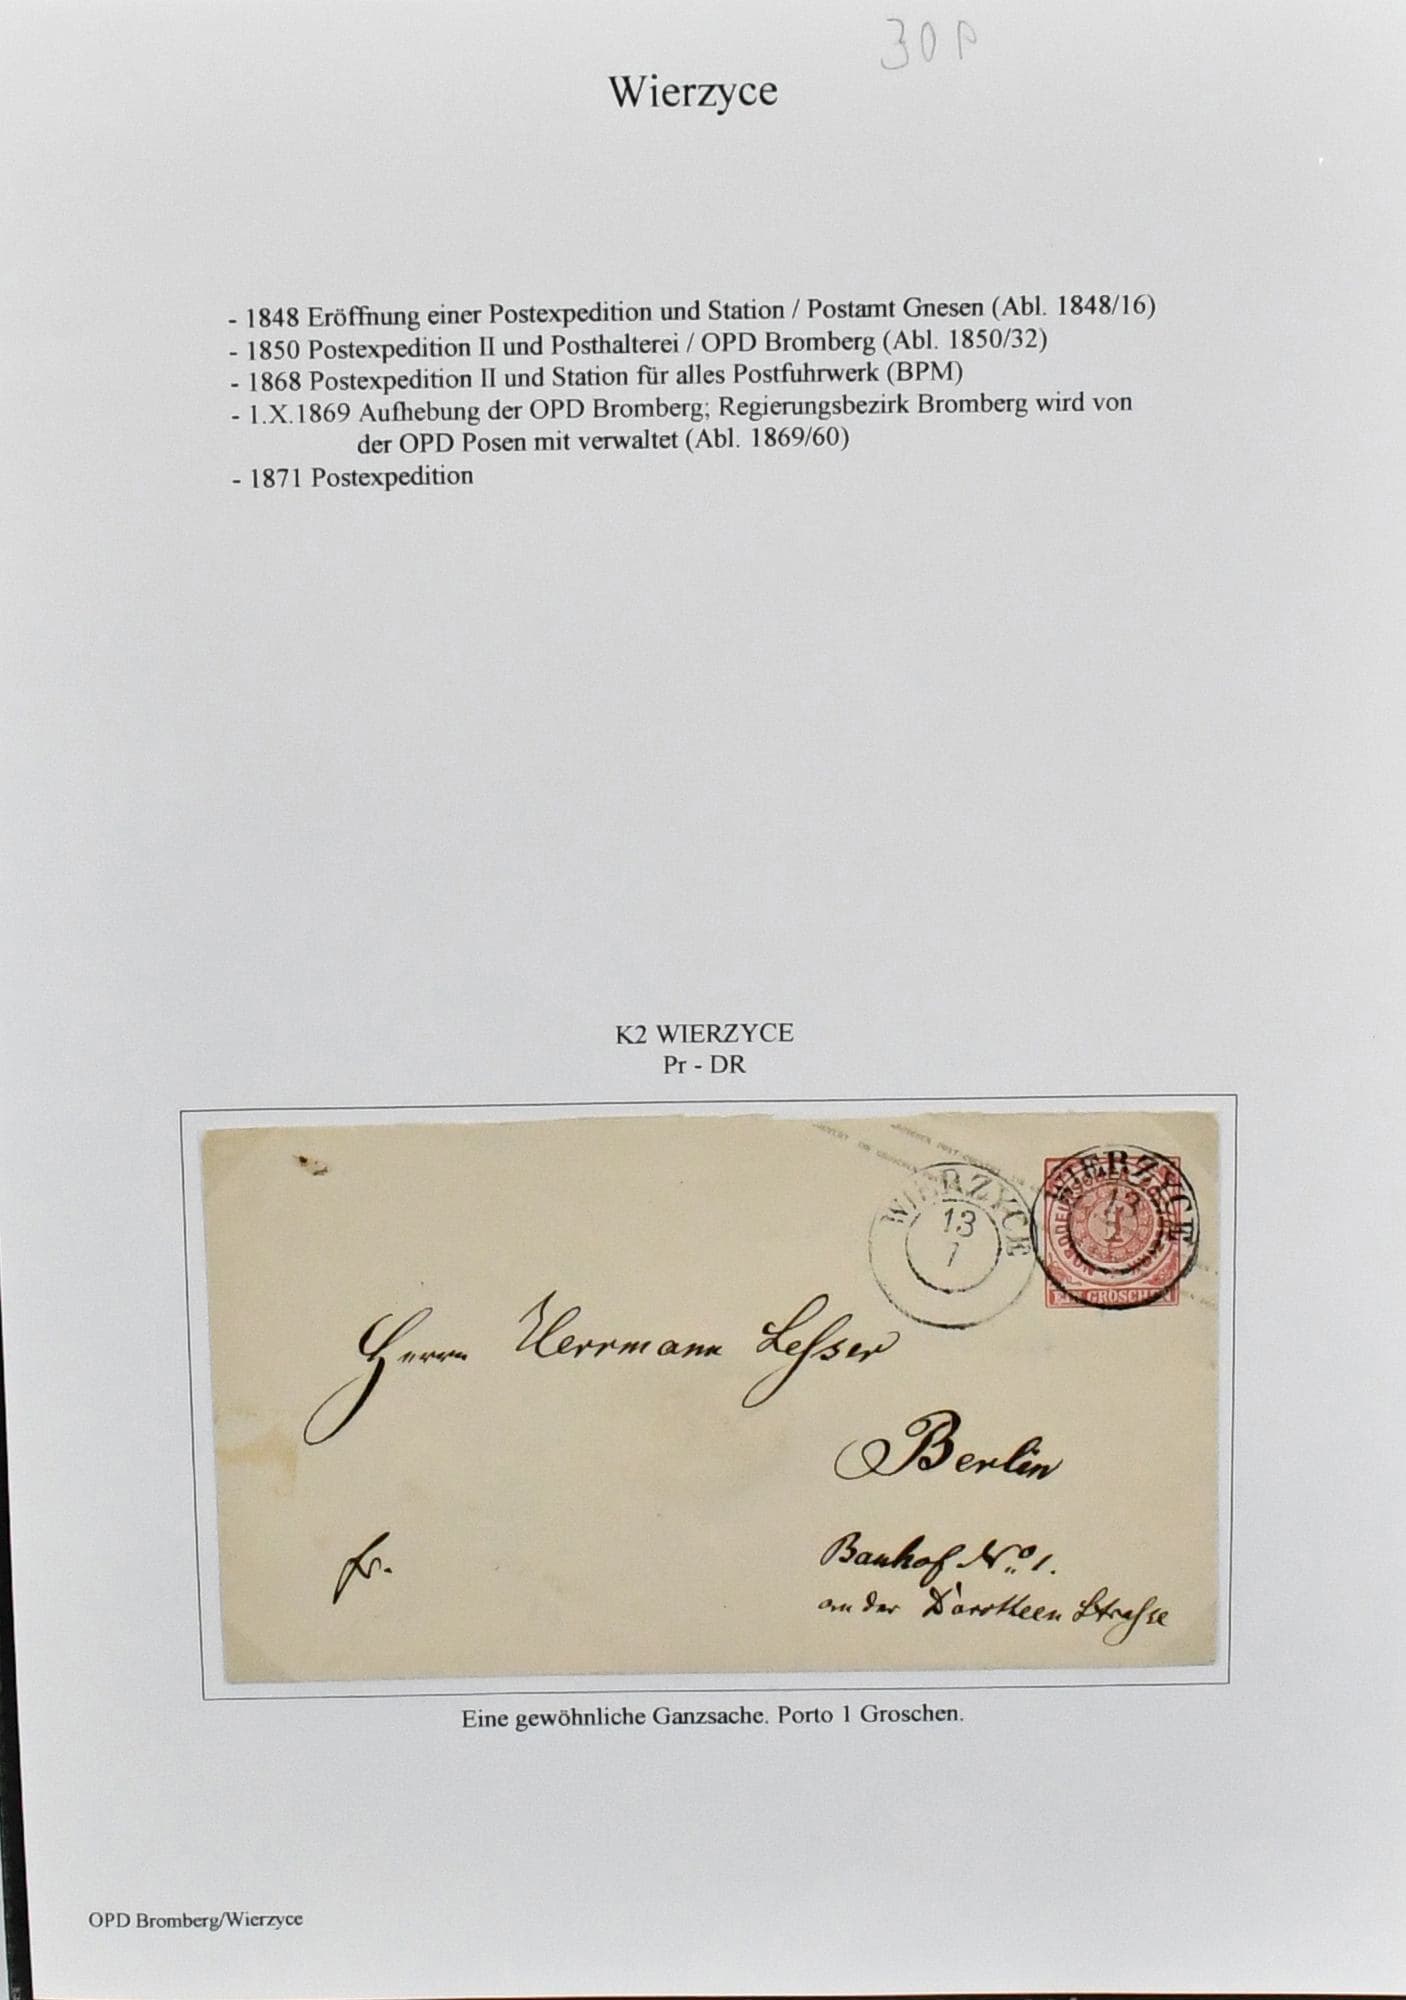 30 P
Wierzyce
- 1848 Eröffnung einer Postexpedition und Station / Postamt Gnesen (Abl. 1848/16)
- 1850 Postexpedition II und Posthalterei / OPD Bromberg (Abl. 1850/32)
- 1868 Postexpedition II und Station für alles Postfuhrwerk (BPM)
- 1.X.1869 Aufhebung der OPD Bromberg; Regierungsbezirk Bromberg wird von
der OPD Posen mit verwaltet (Abl. 1869/60)
- 1871 Postexpedition
K2 WIERZYCE
Pr - DR
WIERZYCE
13
1
WIERZYCE
13
1
EIN GROSCHEN
Herrn Herrmann Lesser
Berlin
fr.
Bauhof No 1.
an der Dorotheen Strasse
Eine gewöhnliche Ganzsache. Porto 1 Groschen.
OPD Bromberg/Wierzyce